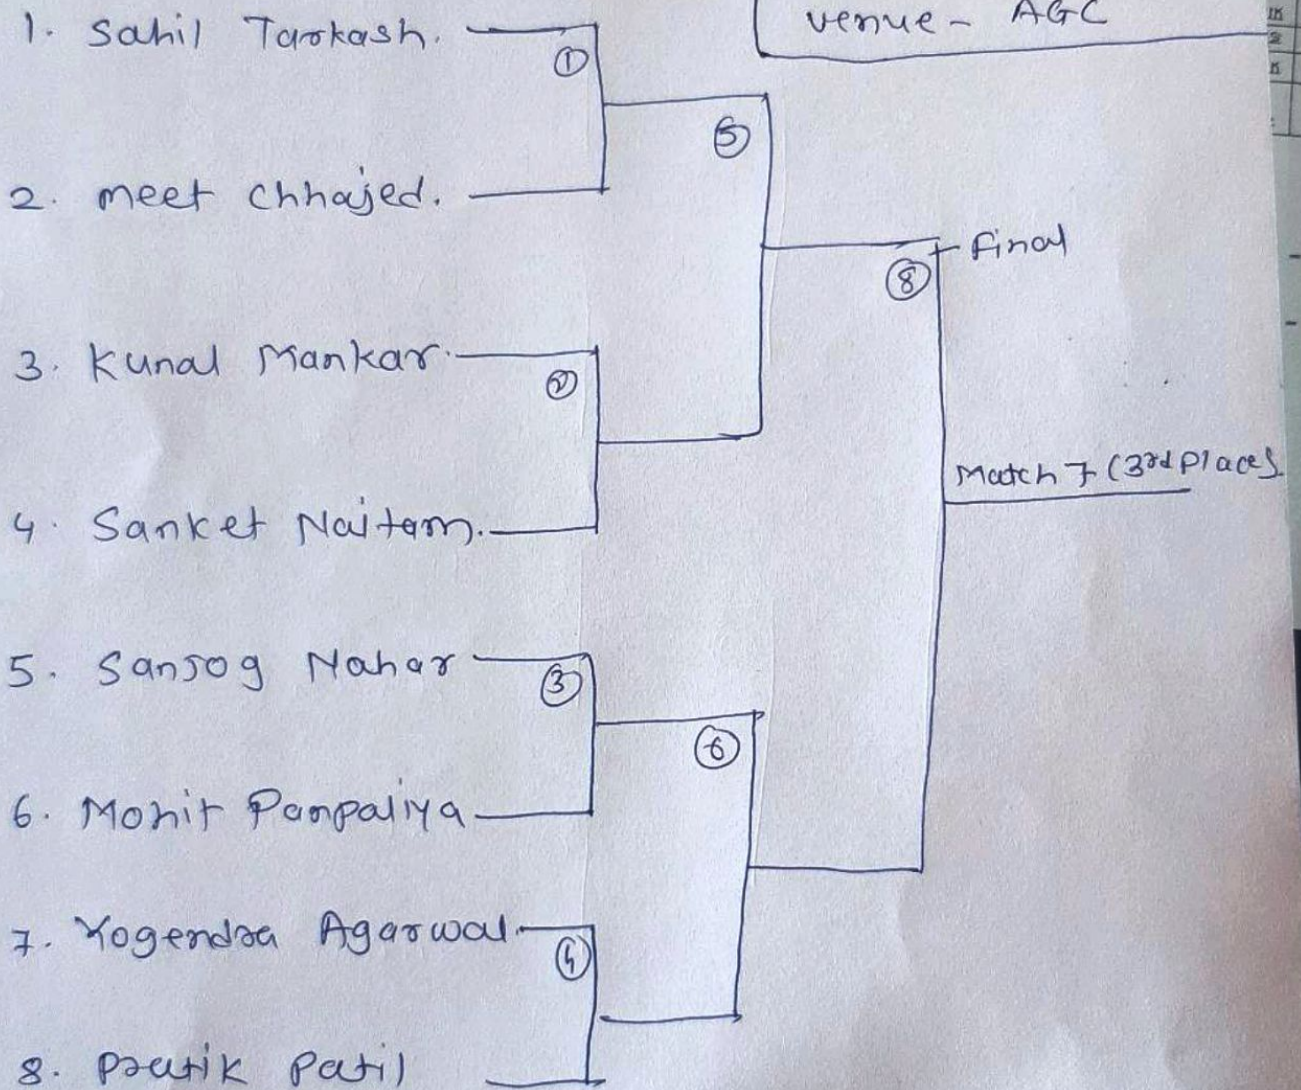 venue - AGC
1. Sahil Tarkash.
①
2. meet chhajed.
⑤
Final
⑧
3. Kunal Mankar.
②
4. Sanket Naitam.
Match 7 (3rd Place)
5. Sanjog Nahar
③
6. Mohit Panpaliya
⑥
7. Yogendra Agarwal.
④
8. Pratik Patil